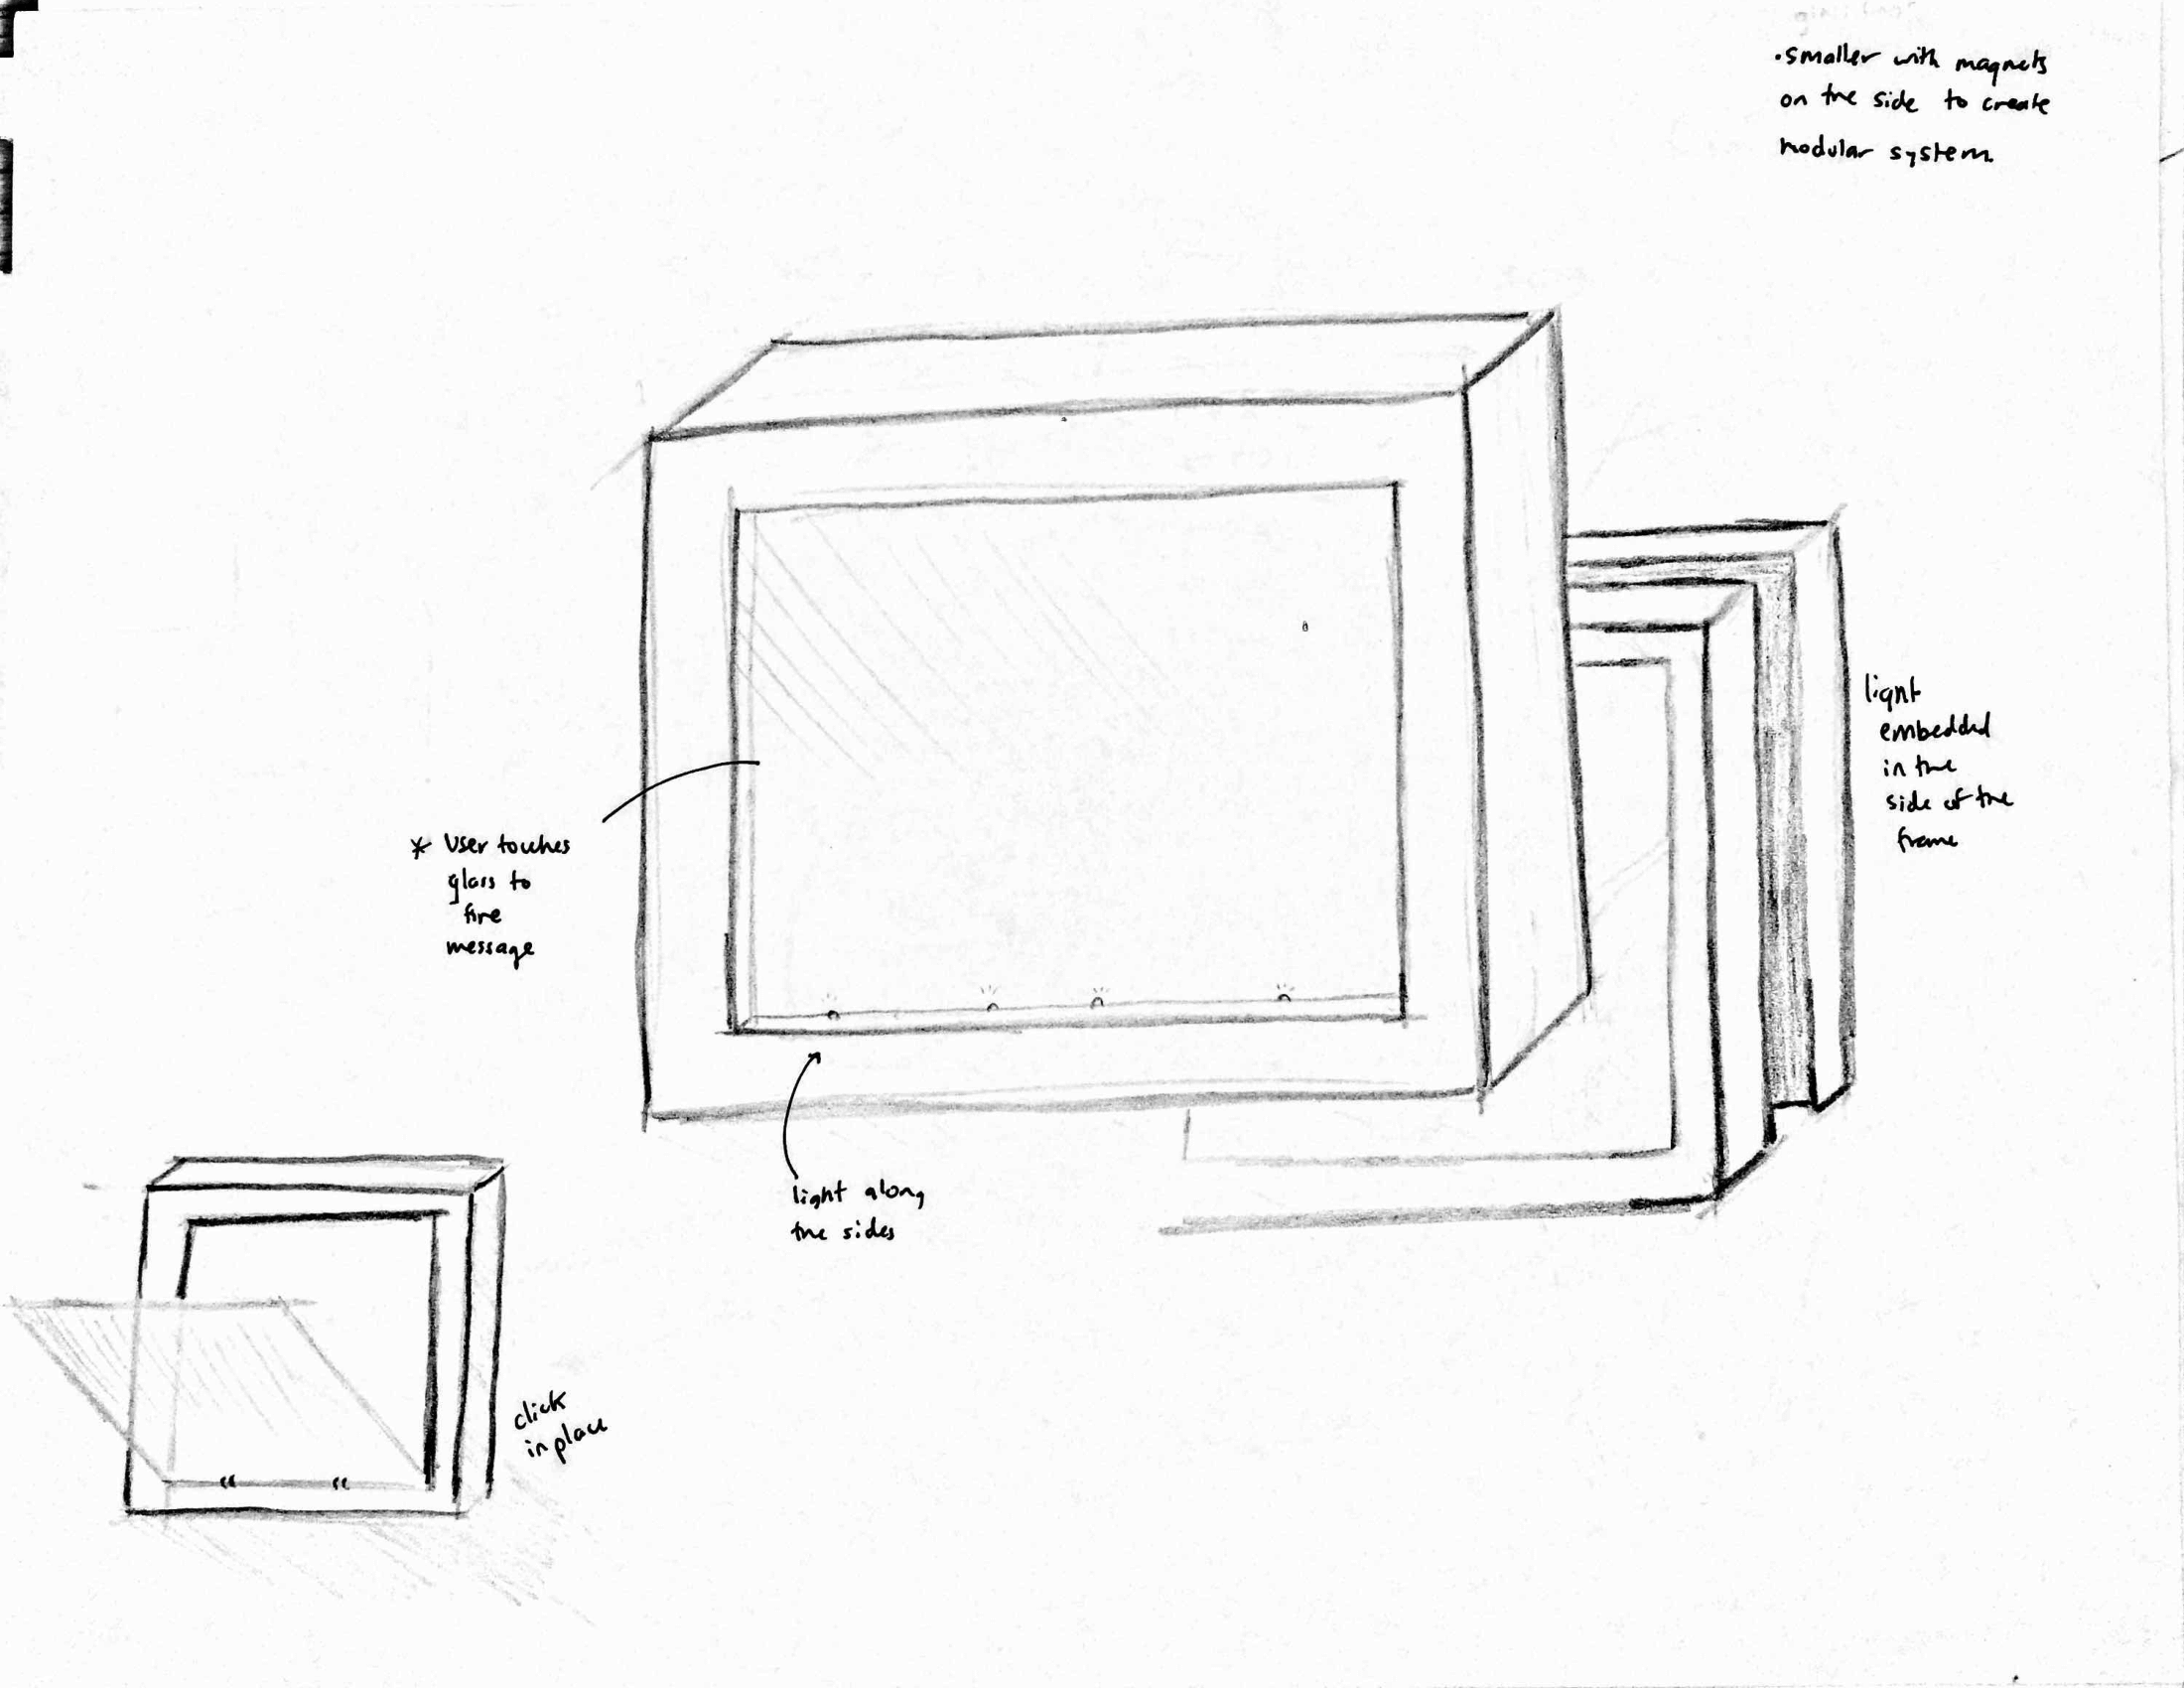 • smaller with magnets
on the side to create
modular system.
light
embedded
in the
side of the
frame
* User touches
glass to
fire
message
light along
the sides
click
in place